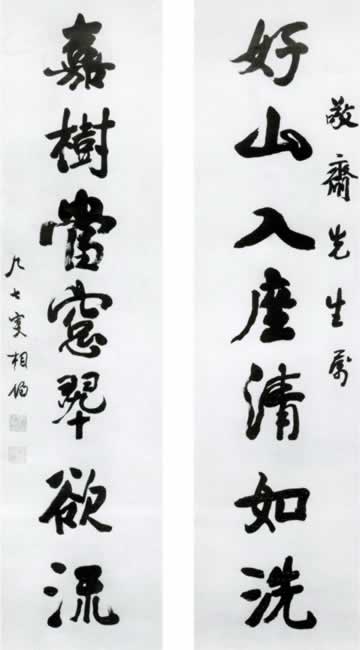 敬齋先生屬
好山入座清如洗
嘉樹當窓翠欲流
九七叟相伯